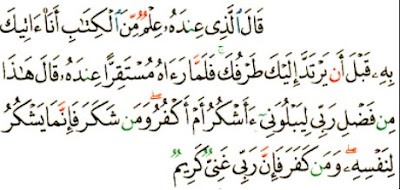 قَالَ ٱلَّذِى عِندَهُۥ عِلْمٌ مِّنَ ٱلْكِتَٰبِ أَنَا۠ ءَاتِيكَ
بِهِۦ قَبْلَ أَن يَرْتَدَّ إِلَيْكَ طَرْفُكَ ۚ فَلَمَّا رَءَاهُ مُسْتَقِرًّا عِندَهُۥ قَالَ هَٰذَا
مِن فَضْلِ رَبِّى لِيَبْلُوَنِىٓ ءَأَشْكُرُ أَمْ أَكْفُرُ ۖ وَمَن شَكَرَ فَإِنَّمَا يَشْكُرُ
لِنَفْسِهِۦ ۖ وَمَن كَفَرَ فَإِنَّ رَبِّى غَنِىٌّ كَرِيمٌ